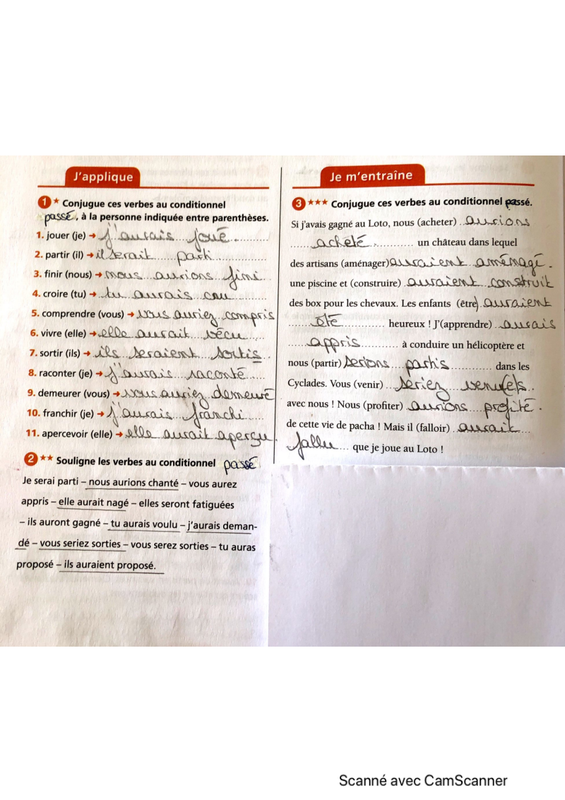 J'applique
1 * Conjugue ces verbes au conditionnel
passé, à la personne indiquée entre parenthèses.
1. jouer (je) → j'aurais joué
2. partir (il) → il serait parti
3. finir (nous) → nous aurions fini
4. croire (tu) → tu aurais cru
5. comprendre (vous) → vous auriez compris
6. vivre (elle) → elle aurait vécu
7. sortir (ils) → ils seraient sortis
8. raconter (je) → j'aurais raconté
9. demeurer (vous) → vous auriez demeuré
10. franchir (je) → j'aurais franchi
11. apercevoir (elle) → elle aurait aperçu
2 ** Souligne les verbes au conditionnel passé
Je serai parti – nous aurions chanté – vous aurez
appris – elle aurait nagé – elles seront fatiguées
– ils auront gagné – tu aurais voulu – j'aurais deman-
dé – vous seriez sorties – vous serez sorties – tu auras
proposé – ils auraient proposé.
Je m'entraîne
3 *** Conjugue ces verbes au conditionnel passé.
Si j'avais gagné au Loto, nous (acheter) aurions
acheté un château dans lequel
des artisans (aménager) auraient aménagé.
une piscine et (construire) auraient construit
des box pour les chevaux. Les enfants (être) auraient
été heureux ! J'(apprendre) aurais
appris à conduire un hélicoptère et
nous (partir) serions partis dans les
Cyclades. Vous (venir) seriez venu(e)s
avec nous ! Nous (profiter) aurions profité.
de cette vie de pacha ! Mais il (falloir) aurait
fallu que je joue au Loto !
Scanné avec CamScanner